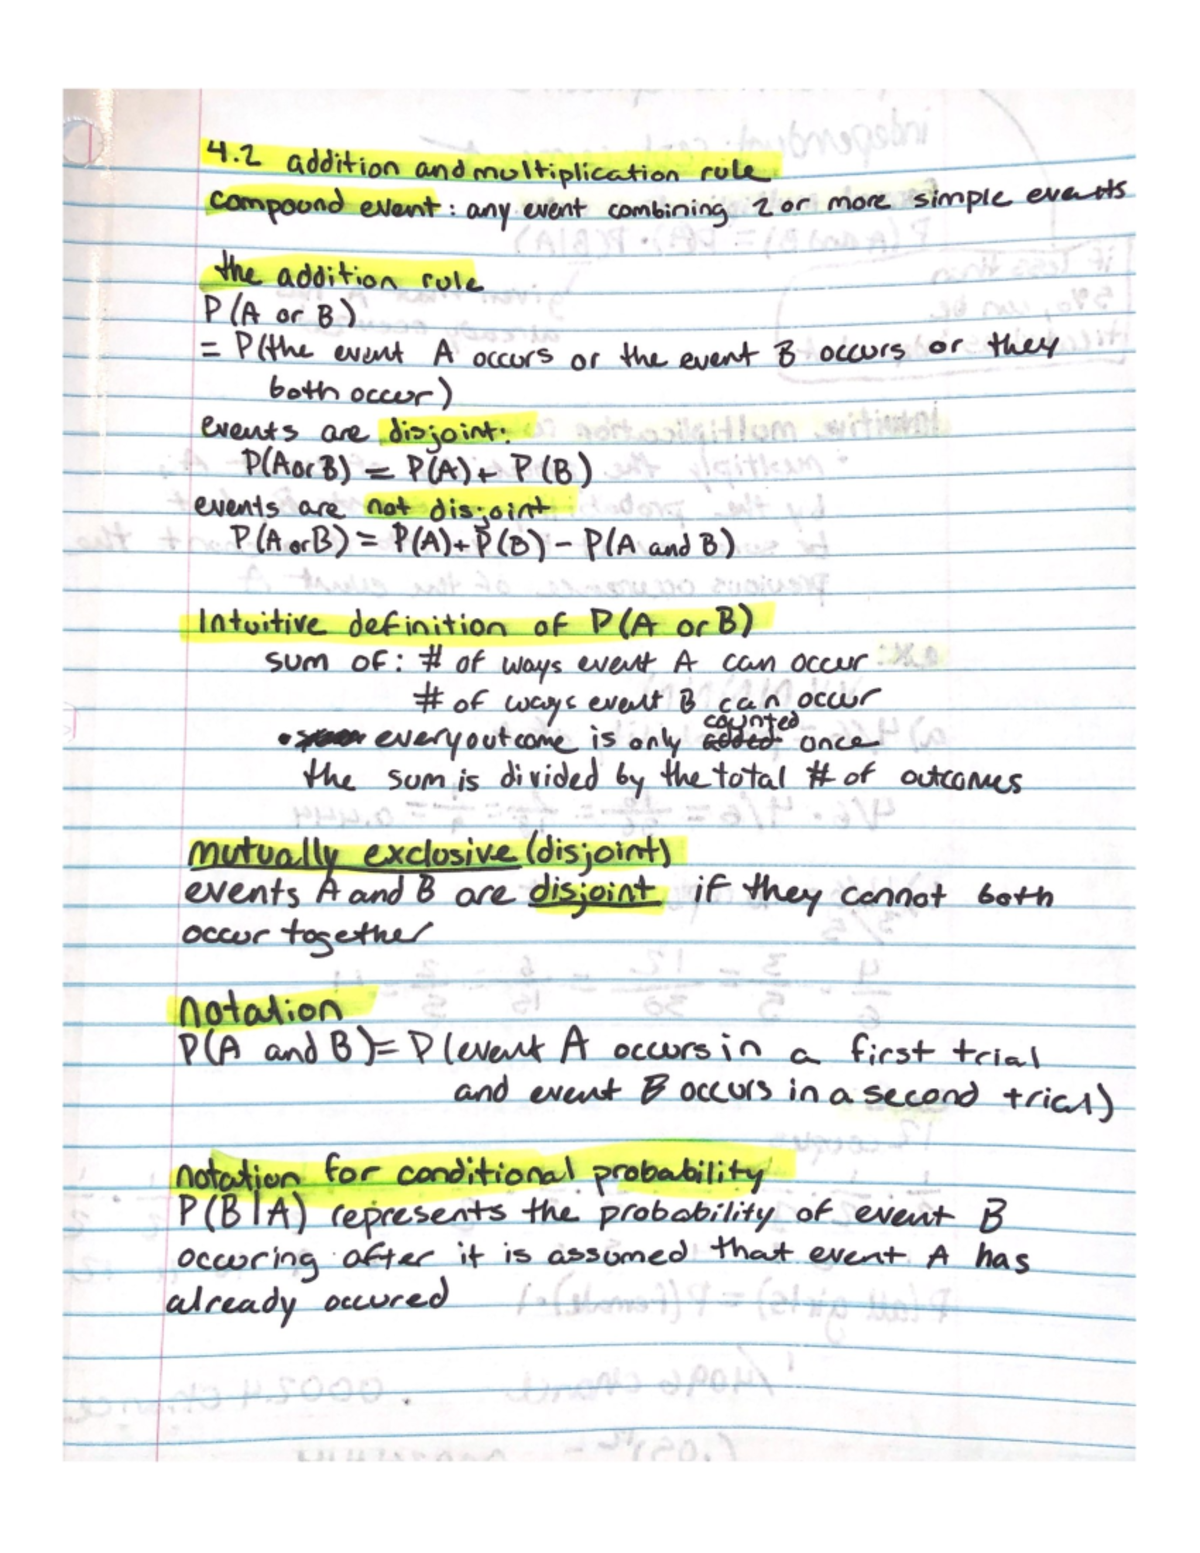 4.2 addition and multiplication rule
compound event: any event combining 2 or more simple events
the addition rule
P(A or B)
= P(the event A occurs or the event B occurs or they
both occur)
events are disjoint:
P(A or B) = P(A) + P(B)
events are not disjoint
P(A or B) = P(A) + P(B) - P(A and B)
Intuitive definition of P(A or B)
sum of: # of ways event A can occur
# of ways event B can occur
counted
• every outcome is only added once
the sum is divided by the total # of outcomes
mutually exclusive (disjoint)
events A and B are disjoint if they cannot both
occur together
notation
P(A and B) = P(event A occurs in a first trial
and event B occurs in a second trial)
notation for conditional probability
P(B|A) represents the probability of event B
occuring after it is assumed that event A has
already occured